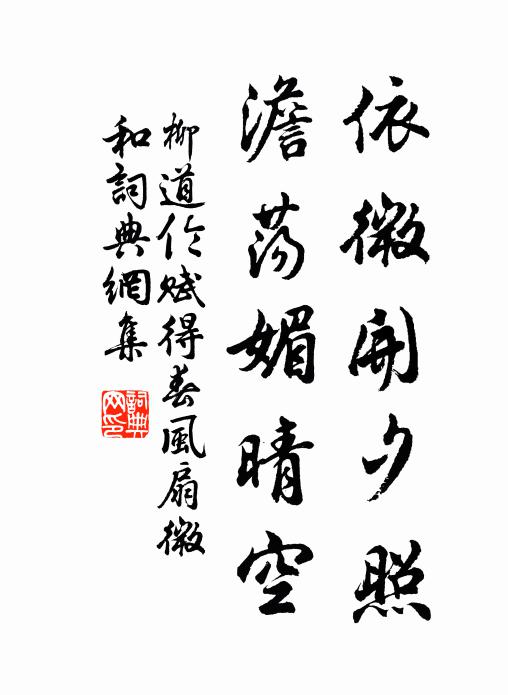 依微開夕照
澹蕩媚晴空
柳道伦賦得春風扇微
和詞典網集
詞典网印